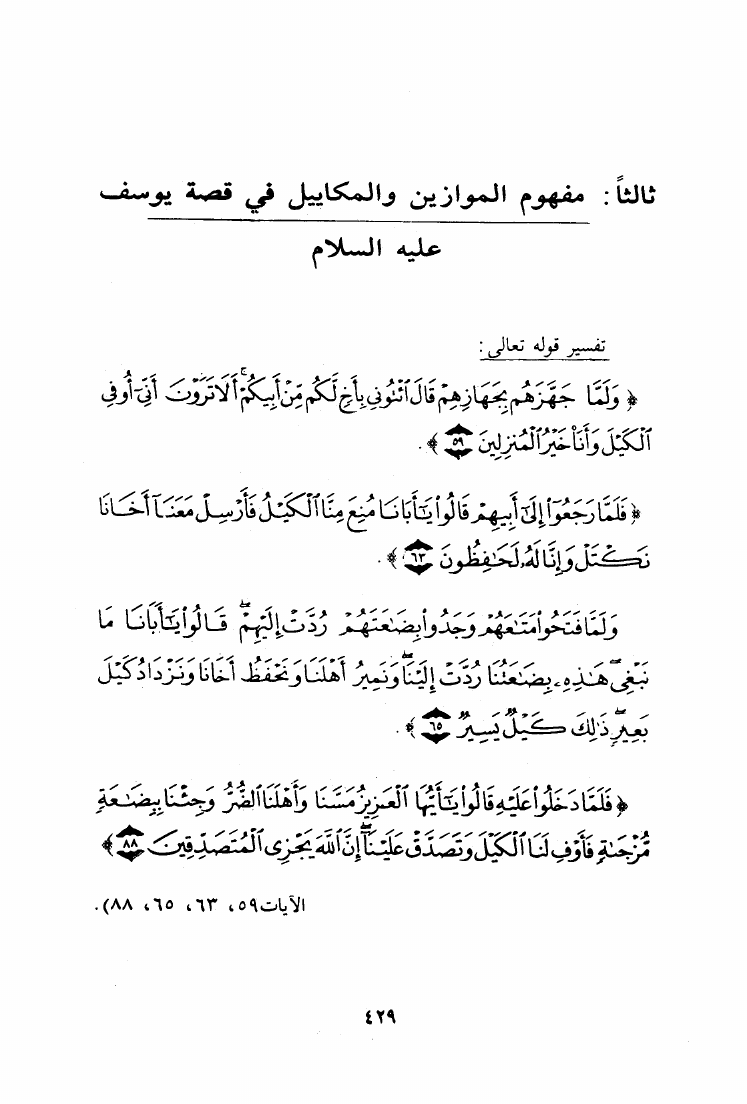 ثالثاً: مفهوم الموازين والمكاييل في قصة يوسف
عليه السلام
تفسير قوله تعالى:
﴿ وَلَمَّا جَهَّزَهُم بِجَهَازِهِمْ قَالَ ٱئْتُونِى بِأَخٍ لَّكُم مِّنْ أَبِيكُمْ ۚ أَلَا تَرَوْنَ أَنِّىٓ أُوفِى
ٱلْكَيْلَ وَأَنَا۠ خَيْرُ ٱلْمُنزِلِينَ ٥٩ ﴾.
﴿ فَلَمَّا رَجَعُوٓا۟ إِلَىٰٓ أَبِيهِمْ قَالُوا۟ يَـٰٓأَبَانَا مُنِعَ مِنَّا ٱلْكَيْلُ فَأَرْسِلْ مَعَنَآ أَخَانَا
نَكْتَلْ وَإِنَّا لَهُۥ لَحَـٰفِظُونَ ٦٣ ﴾.
وَلَمَّا فَتَحُوا۟ مَتَـٰعَهُمْ وَجَدُوا۟ بِضَـٰعَتَهُمْ رُدَّتْ إِلَيْهِمْ ۖ قَالُوا۟ يَـٰٓأَبَانَا مَا
نَبْغِى ۖ هَـٰذِهِۦ بِضَـٰعَتُنَا رُدَّتْ إِلَيْنَا ۖ وَنَمِيرُ أَهْلَنَا وَنَحْفَظُ أَخَانَا وَنَزْدَادُ كَيْلَ
بَعِيرٍ ۖ ذَٰلِكَ كَيْلٌ يَسِيرٌ ٦٥ ﴾.
﴿ فَلَمَّا دَخَلُوا۟ عَلَيْهِ قَالُوا۟ يَـٰٓأَيُّهَا ٱلْعَزِيزُ مَسَّنَا وَأَهْلَنَا ٱلضُّرُّ وَجِئْنَا بِبِضَـٰعَةٍ
مُّزْجَىٰةٍ فَأَوْفِ لَنَا ٱلْكَيْلَ وَتَصَدَّقْ عَلَيْنَآ ۖ إِنَّ ٱللَّهَ يَجْزِى ٱلْمُتَصَدِّقِينَ ٨٨ ﴾
الآيات ٥٩، ٦٣، ٦٥، ٨٨).
٤٢٩